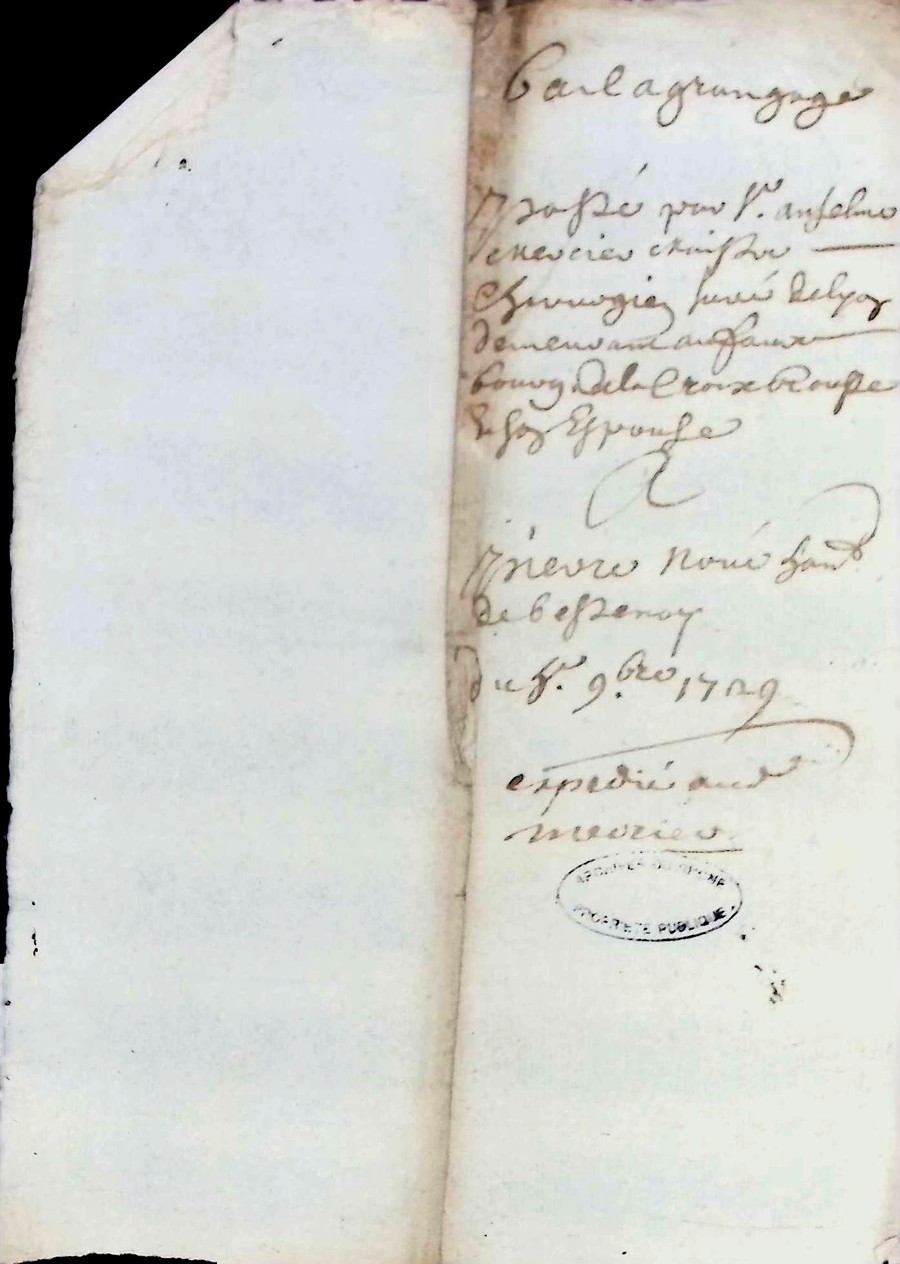 Bail a grangage
Passé par Sr. anselme
mercier maistre
Chirurgien juré de Lyon
demeurant au faux
bourg de la Croix Rousse
& son Espouse
A
Pierre Noué hant
de bessenay
du 9.bre 1729
expedié aud
mercier
ARCHIVES DU RHONE
PROPRIETE PUBLIQUE